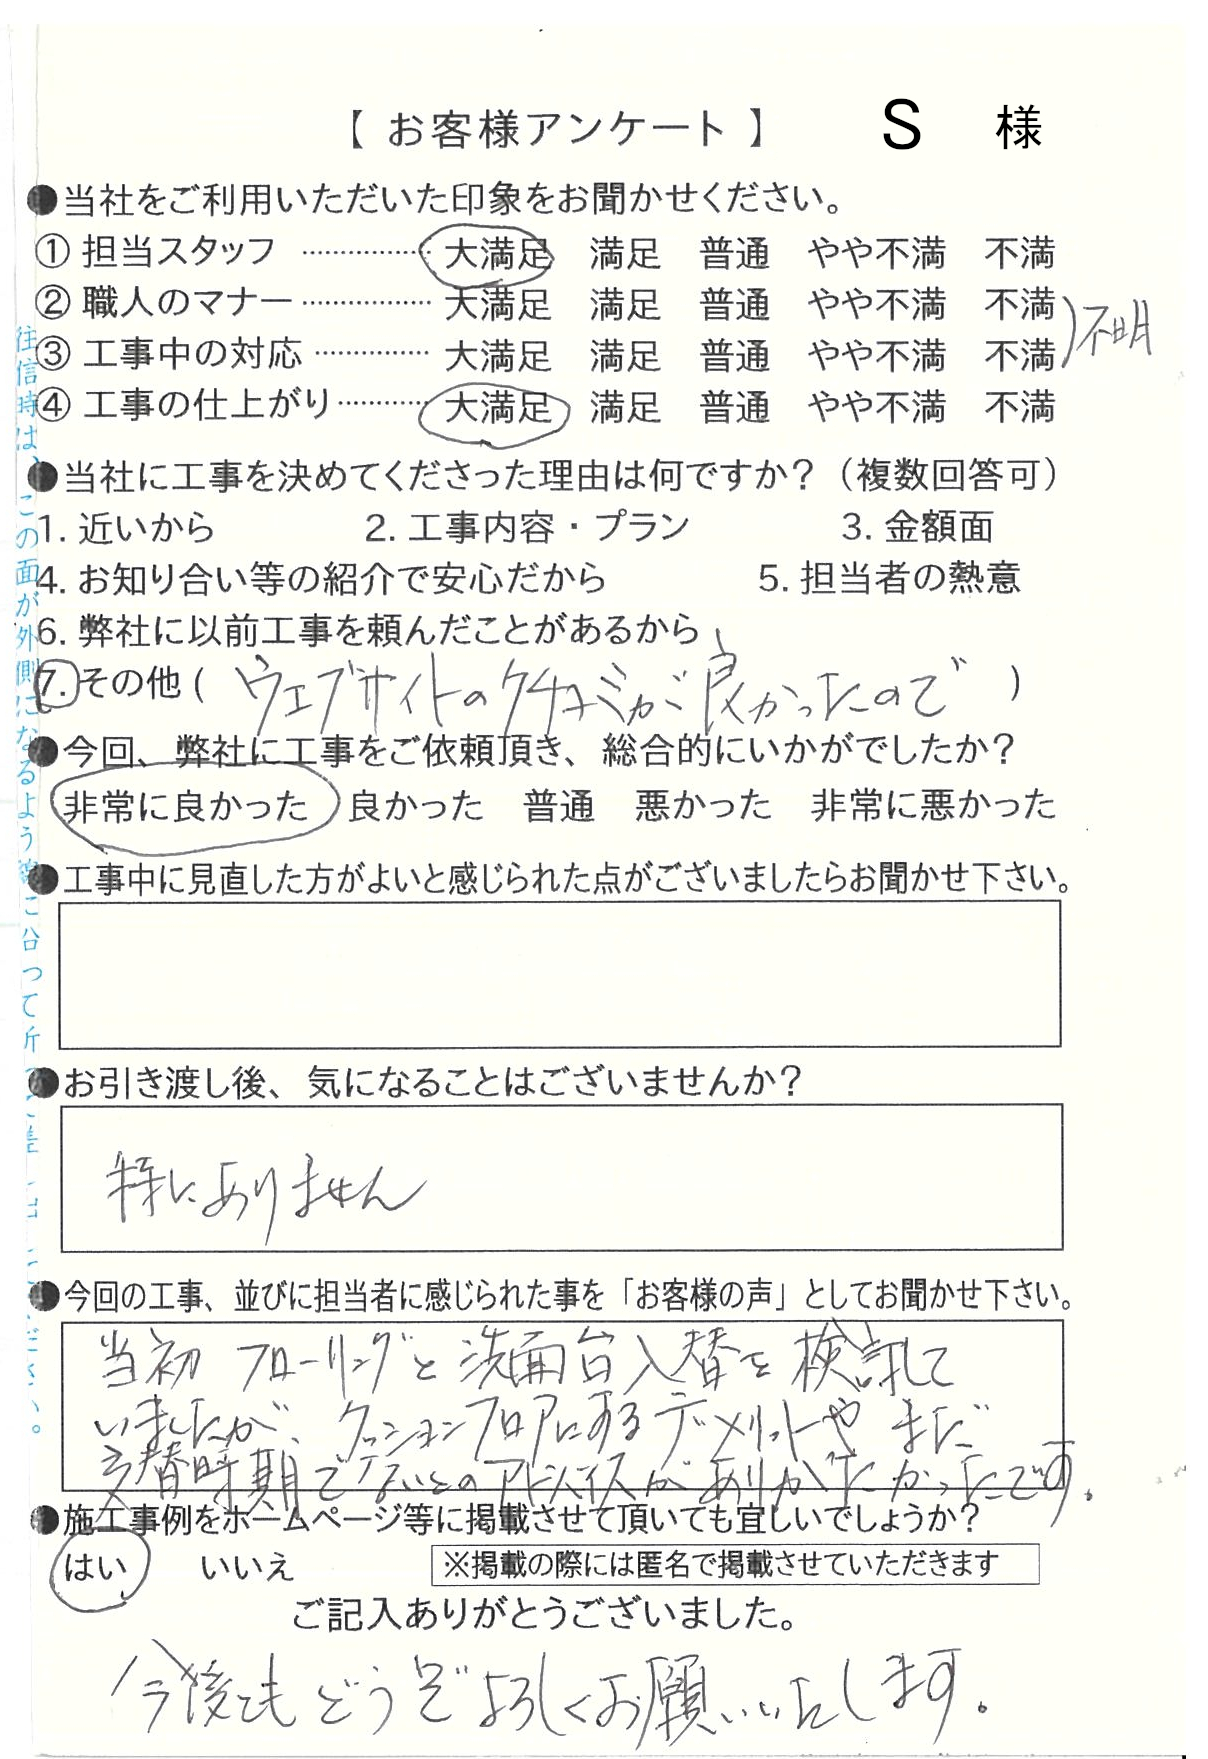 【 お客様アンケート 】 S 様
●当社をご利用いただいた印象をお聞かせください。
① 担当スタッフ …………… 大満足 満足 普通 やや不満 不満
② 職人のマナー …………… 大満足 満足 普通 やや不満 不満
)不明
③ 工事中の対応 …………… 大満足 満足 普通 やや不満 不満
④ 工事の仕上がり ………… 大満足 満足 普通 やや不満 不満
●当社に工事を決めてくださった理由は何ですか？（複数回答可）
1. 近いから 2. 工事内容・プラン 3. 金額面
4. お知り合い等の紹介で安心だから 5. 担当者の熱意
6. 弊社に以前工事を頼んだことがあるから
7. その他 ( ウェブサイトのクチコミが良かったので )
●今回、弊社に工事をご依頼頂き、総合的にいかがでしたか？
非常に良かった 良かった 普通 悪かった 非常に悪かった
●工事中に見直した方がよいと感じられた点がございましたらお聞かせ下さい。
●お引き渡し後、気になることはございませんか？
特にありません
●今回の工事、並びに担当者に感じられた事を「お客様の声」としてお聞かせ下さい。
当初 フローリングと洗面台入替を検討して
いましたが、クッションフロアにするデメリットや まだ
交替時期でないとのアドバイスがありがたかったです。
●施工事例をホームページ等に掲載させて頂いても宜しいでしょうか？
はい いいえ ※掲載の際には匿名で掲載させていただきます
ご記入ありがとうございました。
今後ともどうぞよろしくお願いいたします。
往信時は、この面が外側になるよう線に沿って折
ください。